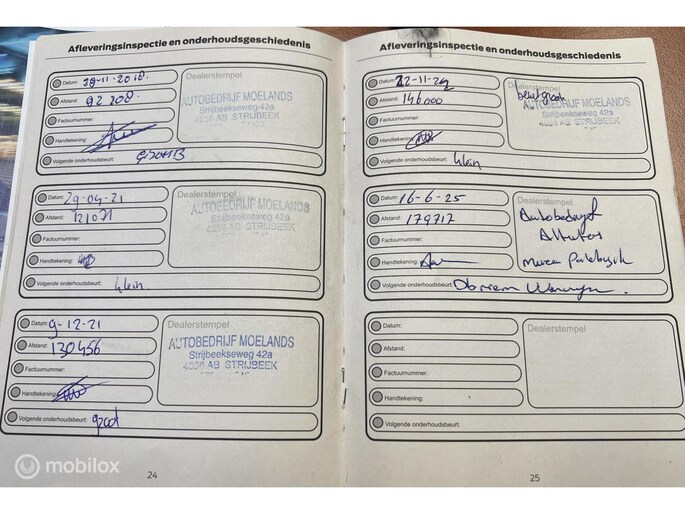 Afleveringsinspectie en onderhoudsgeschiedenis
Datum: 29-11-2018.
Dealerstempel
Afstand: 92 208
AUTOBEDRIJF MOELANDS
Strijbeekseweg 42a
4856 AB STRIJBEEK
Factuurnummer:
Handtekening:
Volgende onderhoudsbeurt:
Datum: 29-04-21
Dealerstempel
Afstand: 121071
AUTOBEDRIJF MOELANDS
Strijbeekseweg 42a
4856 AB STRIJBEEK
Factuurnummer:
Handtekening:
Volgende onderhoudsbeurt: klein
Datum: 9-12-21
Dealerstempel
Afstand: 130456
AUTOBEDRIJF MOELANDS
Strijbeekseweg 42a
4856 AB STRIJBEEK
Factuurnummer:
Handtekening:
Volgende onderhoudsbeurt: groot
24
Afleveringsinspectie en onderhoudsgeschiedenis
Datum: 22-11-24
Dealerstempel
Afstand: 146000
AUTOBEDRIJF MOELANDS
Strijbeekseweg 42a
4856 AB STRIJBEEK
Factuurnummer:
Handtekening:
Volgende onderhoudsbeurt: klein
Datum: 16-6-25
Dealerstempel
Afstand: 179717
Autobedrijf
Factuurnummer:
Handtekening:
Volgende onderhoudsbeurt:
Datum:
Dealerstempel
Afstand:
Factuurnummer:
Handtekening:
Volgende onderhoudsbeurt:
25
mobilox